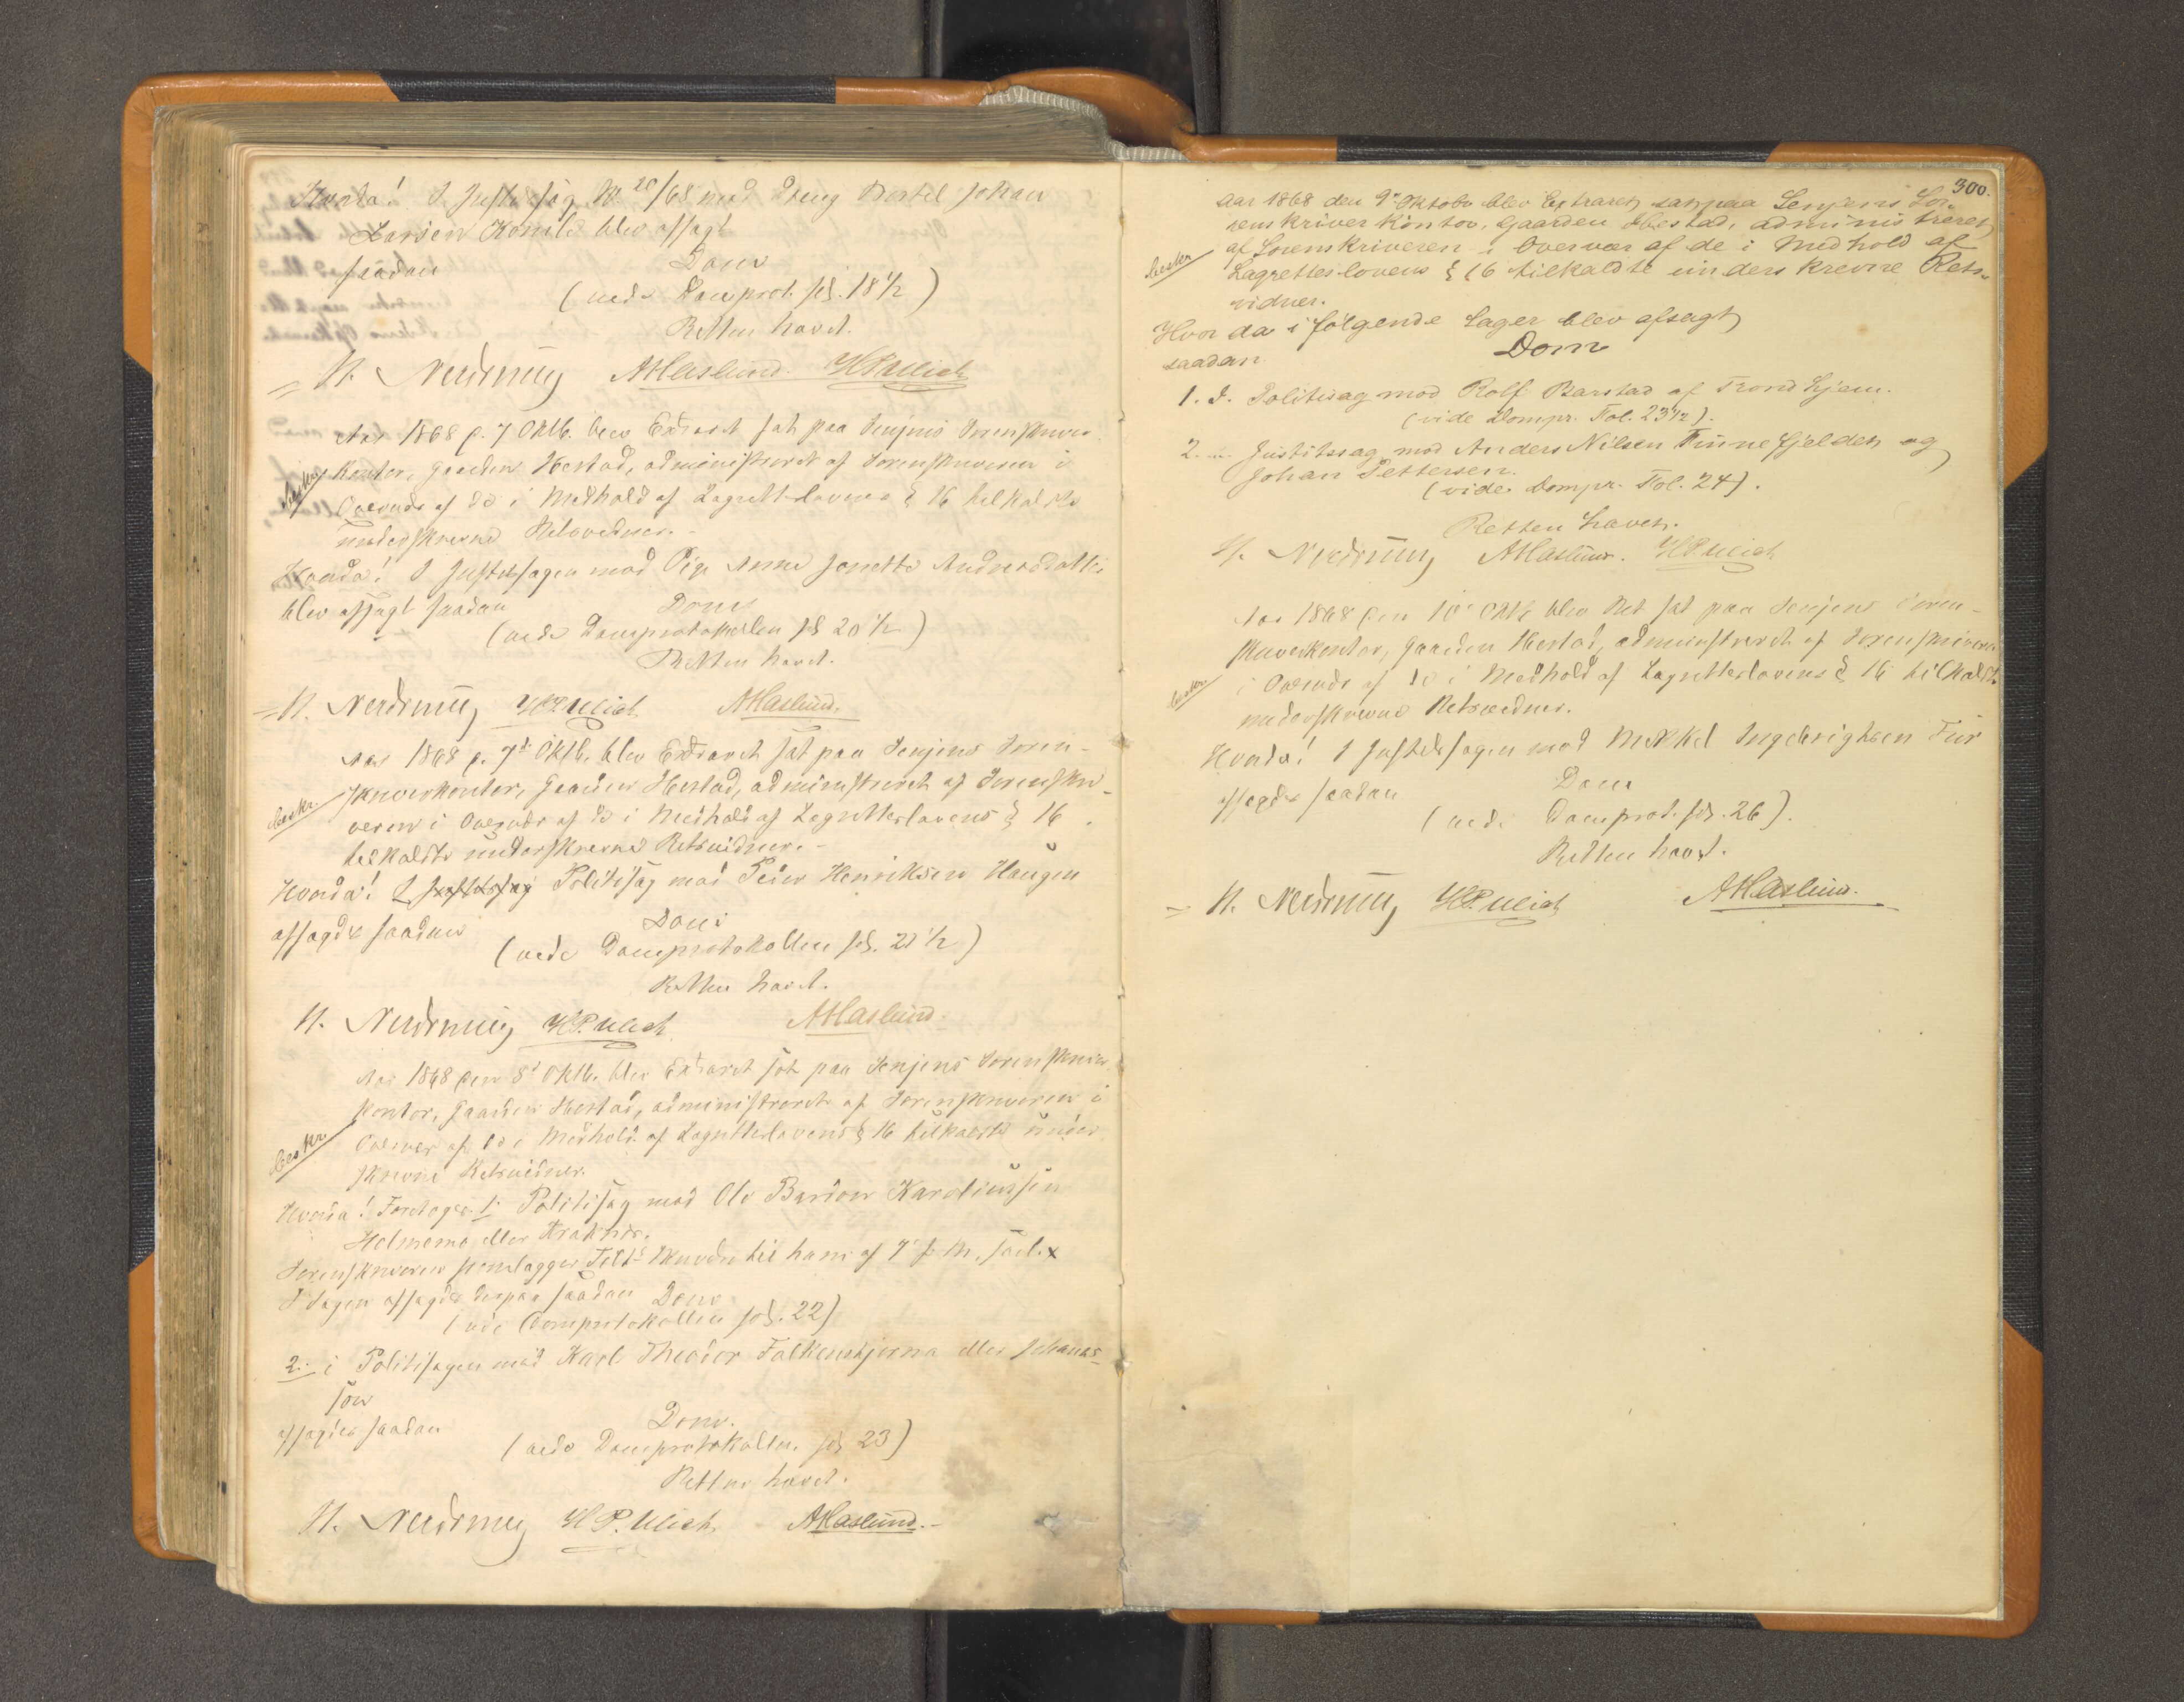 Hvorda! I Justitssag No 20/68 mod Dreng Bertel Johan
Larsen blev afsagt
saadan Dom
(vide Domprot. fol. 18 1/2)
Retten hævet.
N. Nerdrum AHaslund. HPUlich
Aar 1868 d. 7 Oktb. blev Extraret sat paa Senjens Sorenskriver
Beskr.
kontor, Gaarden Ibestad, administreret af Sorenskriveren i
Overvær af de i Medhold af Lagrettelovens § 16 tilkaldte
underskrevne Retsvidner.-
Hvorda! I Justitssagen mod Pige Anne Jonette Andreasdatter
blev afsagt saadan Dom
(vide Domprotokollen fol 20 1/2)
Retten hævet.
N. Nerdrum HPUlich AHaslund.
Aar 1868 d. 7d Oktb. blev Extraret sat paa Senjens Soren-
skriverkontor, Gaarden Ibestad, administreret af Sorenskri-
Beskr.
veren i Overvær af de i Medhold af Lagrettelovens § 16
tilkaldte underskrevne Retsvidner.-
Hvorda! I Justitssag Politisag mod Peder Henriksen Haugen
afsagdes saadan Dom
(vide Domprotokollen fol. 21 1/2)
Retten hævet.
N. Nerdrum HPUlich AHaslund
Aar 1868 den 8d Oktb. blev Extraret sat paa Senjens Sorenskriver
kontor, Gaarden Ibestad, administreret af Sorenskriveren i
Beskr.
Overvær af de i Medhold af Lagrettelovens § 16 tilkaldte under
skrevne Retsvidner.
Hvorda! Foretoges 1. Politisag mod Ole Bardon Karoliussen
Holmemo eller
Sorenskriveren fremlagger til ham af 7d
I Sagen afsagdes derpaa saadan Dom
(vide Domprotokollen fol. 22)
2. i Politisagen mod Karl Theodor Falkenstjerna eller Johans-
son
afsagdes saadan Dom.
(vide Domprotokollen fol 23)
Retten hævet.
N. Nerdrum HPUlich AHaslund.-
300.
Aar 1868 den 9de Oktober blev Extraret sat paa Senjens So-
renskriver Kontor, Gaarden Ibestad, administreret
af Sorenskriveren i Overvær af de i Medhold af
Beskr
Lagretteslovens § 16 tilkaldte underskrevne Rets-
vidner.
Hvor da i følgende Sager blev afsagt
saadan Dom
1. I. Politisag mod Rolf Barstad af Trondhjem.
(vide Dompr. Fol. 23 1/2).
2. - Justitssag mod Anders Nilsen Finnefjeldet og
Johan Pettersen.
(vide Dompr. Fol. 24).
Retten hævet.
N. Nerdrum AHaslund. HPUlich
Aar 1868 den 10d Oktb blev Ret sat paa Senjens Soren-
skriverkontor, Gaarden Ibestad, administreret af Sorenskriveren
Beskr
i Overvær af de i Medhold af Lagrettelovens § 16 tilkaldte
underskrevne Retsvidner.
Hvorda! I Justitssagen mod Mikkel Ingebrigtsen Fur
afsagdes saadan Dom
(vide Domprot. fol. 26).
Retten hævet.
N. Nerdrum HPUlich AHaslund.